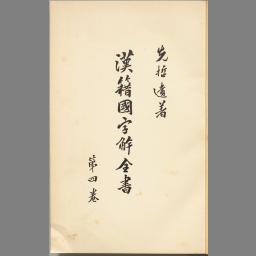 先哲遺著
漢籍國字解全書
第四卷